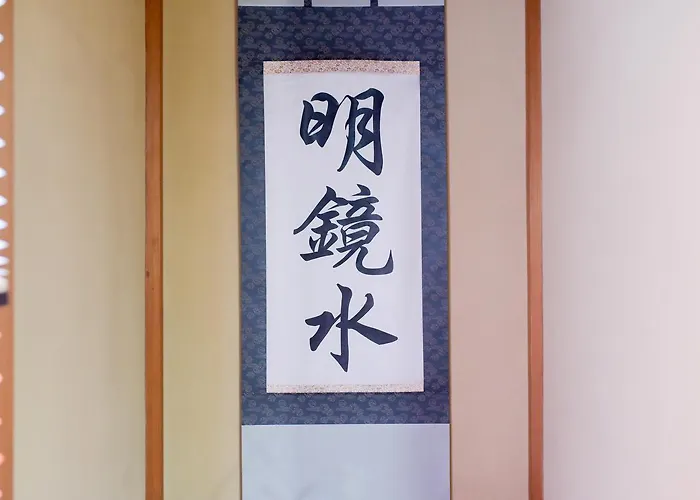 明鏡水